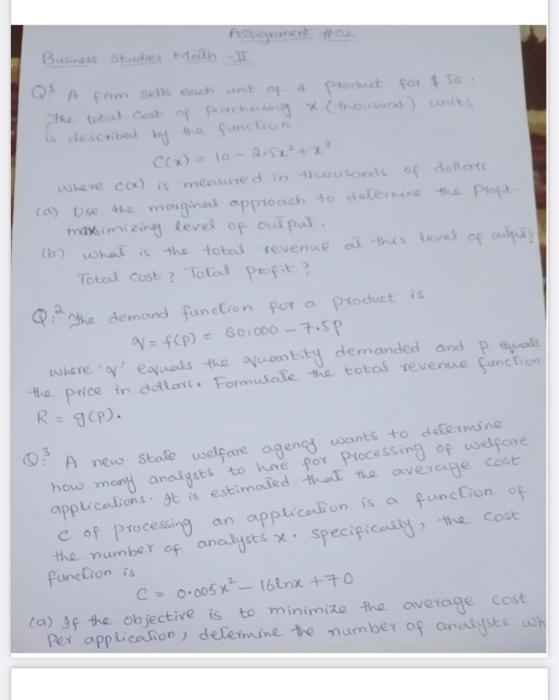 Assignment #02
Business Studies Math -II
Q:1 A firm sells each unit of a product for $ 50.
The total cost of purchasing x (thousand) units
is described by the function
C(x) = 10 - 2.5x² + x³
where c(x) is measured in thousands of dollars
(a) Use the marginal approach to determine the profit-
maximizing level of output.
(b) what is the total revenue at this level of output?
Total cost? Total profit?
Q:2 The demand function for a product is
q = f(p) = 60,000 - 7.5p
where 'q' equals the quantity demanded and p equals
the price in dollars. Formulate the total revenue function
R = g(p).
Q:3 A new state welfare agency wants to determine
how many analysts to hire for processing of welfare
applications. It is estimated that the average cost
C of processing an application is a function of
the number of analysts x. specifically, the cost
function is
C = 0.005x² - 16lnx + 70
(a) If the objective is to minimize the average cost
Per application, determine the number of analysts wh